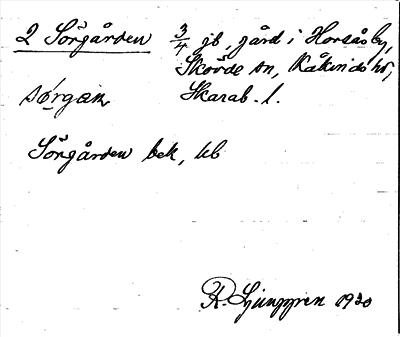 2 Sörgården 3/4 jb, gård i Horsåsby,
Skövde sn, Kåkinds hd,
sørgan, Skarab. l.
Sörgården bek, kb
R. Ljunggren 1930